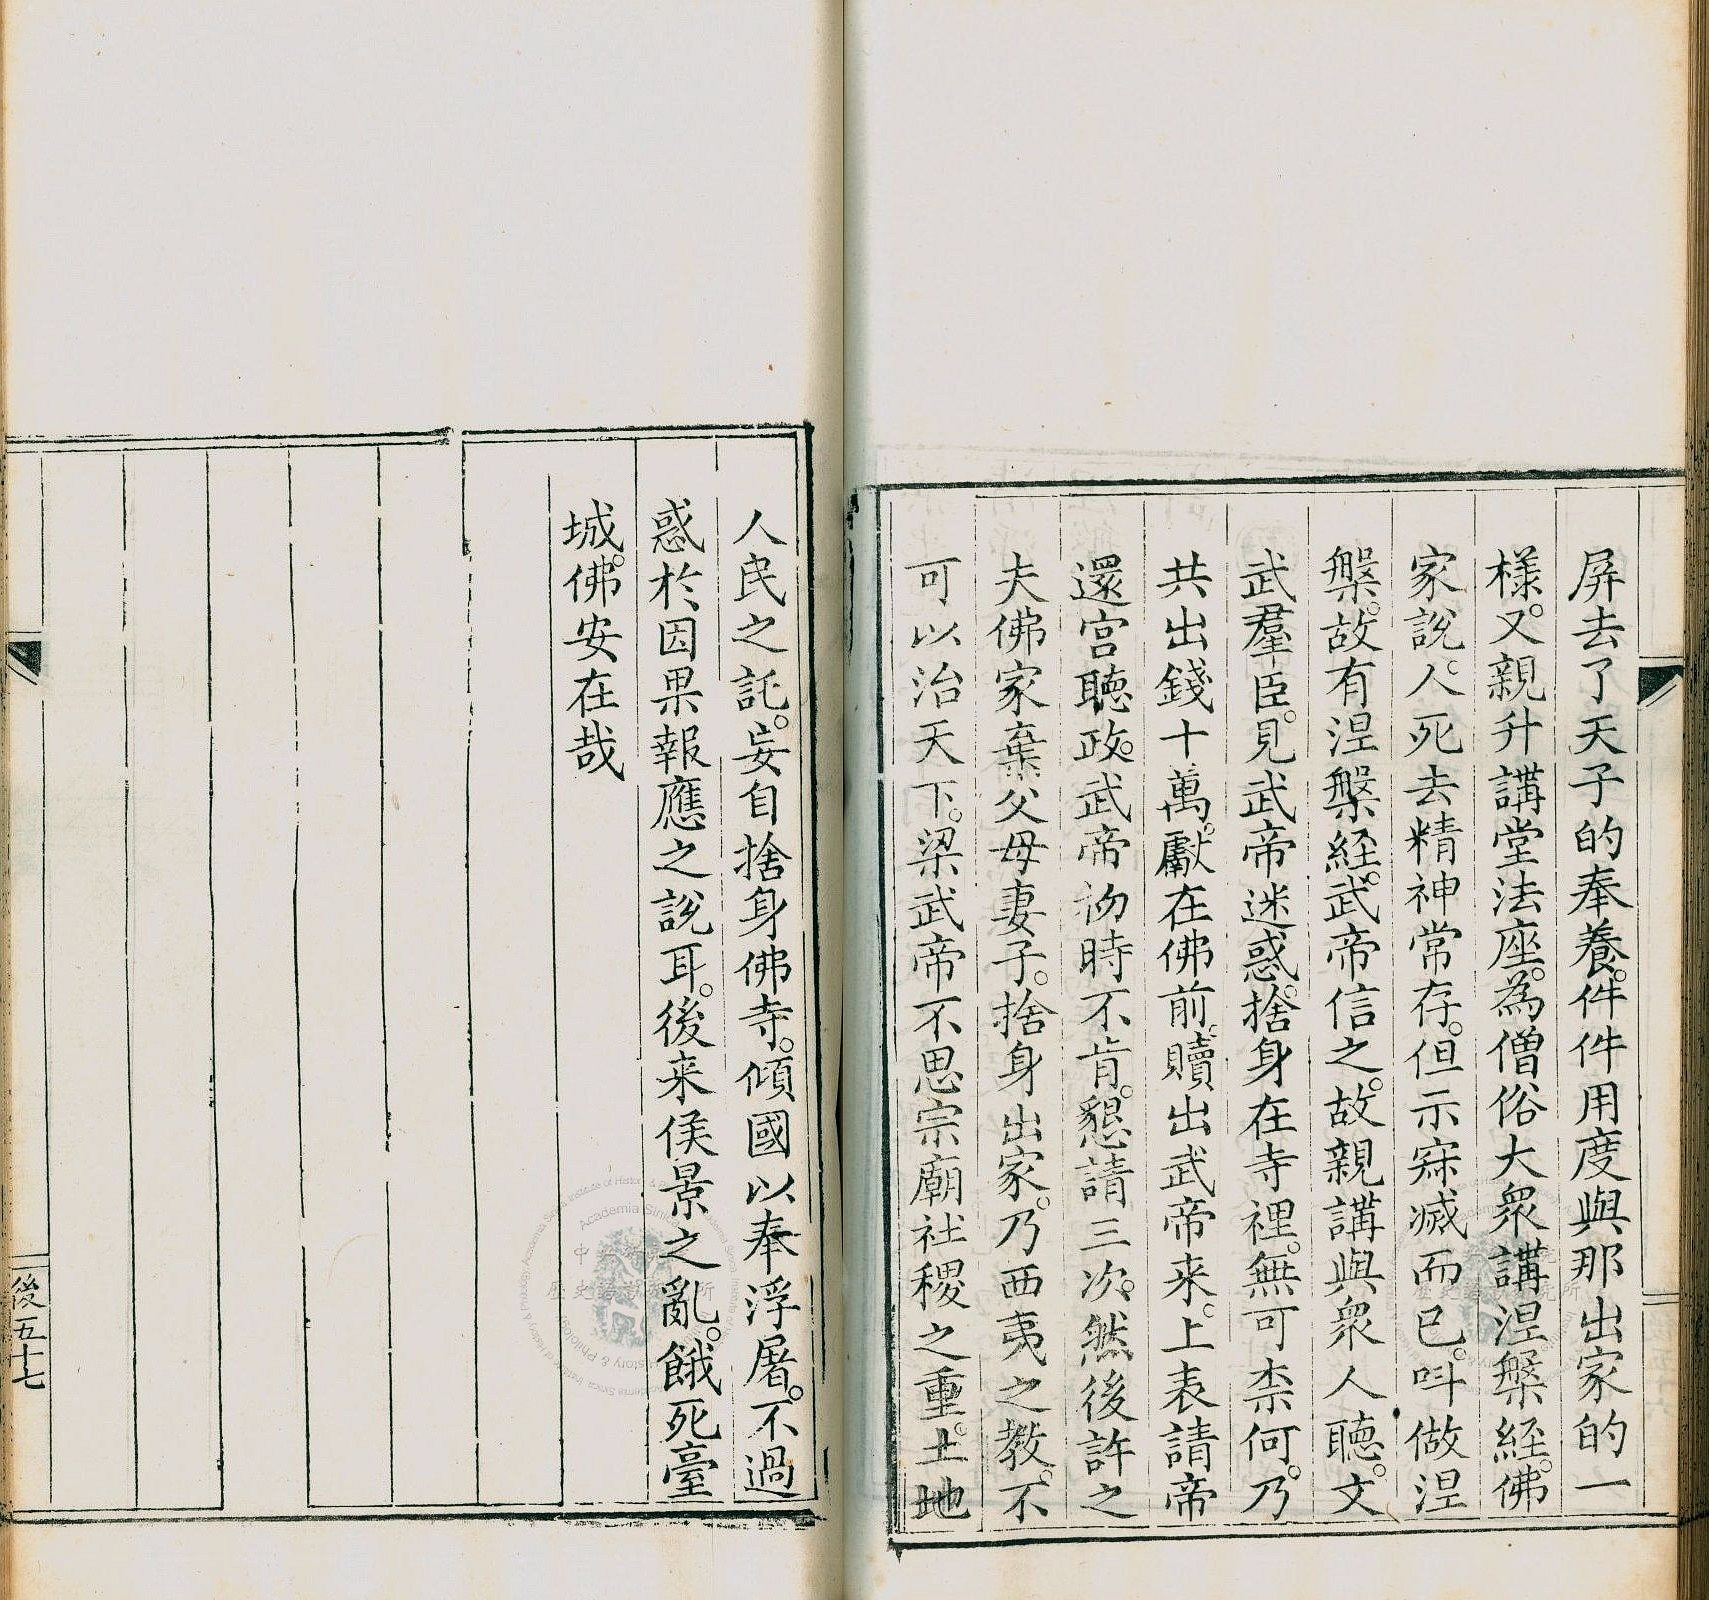 屏去了天子的奉養。件件用度與那出家的一
樣。又親升講堂法座。為僧俗大衆講涅槃經。佛
家說。人死去精神常存。但示寂滅而已。呌做涅
槃。故有涅槃經。武帝信之。故親講與衆人聽。文
武羣臣。見武帝迷惑。捨身在寺裡。無可柰何。乃
共出錢十萬。獻在佛前。贖出武帝来。上表請帝
還宮聽政。武帝初時不肯。懇請三次。然後許之
夫佛家棄父母妻子。捨身出家。乃西夷之教。不
可以治天下。梁武帝不思宗廟社稷之重。土地
人民之託。妄自捨身佛寺。傾國以奉浮屠。不過
惑於因果報應之說耳。後来侯景之亂。餓死臺
城。佛安在哉
後五十七